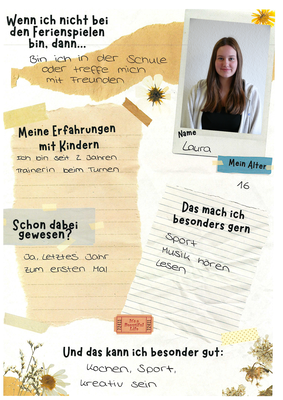 Wenn ich nicht bei
den Ferienspielen
bin, dann...
Bin ich in der Schule
oder treffe mich
mit Freunden
Name
Laura
Mein Alter
16
Meine Erfahrungen
mit Kindern
Ich bin seit 2 Jahren
Trainerin beim Turnen
Das mach ich
besonders gern
Sport
Musik hören
Lesen
Schon dabei
gewesen?
Ja, letztes Jahr
zum ersten Mal
It's a
Beautiful
Life
Und das kann ich besonder gut:
Kochen, Sport,
kreativ sein